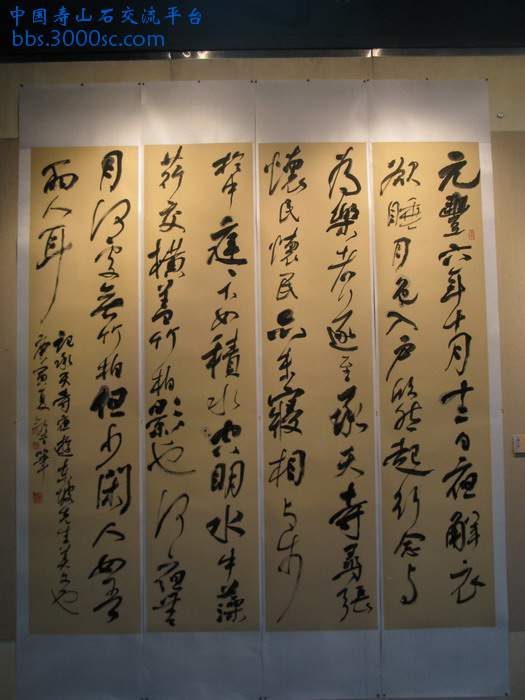 中国寿山石交流平台
bbs.3000sc.com
元豐六年十月十二日夜解衣
欲睡月色入户欣然起行念与
為樂者遂至承天寺尋張
懷民懷民亦未寢相与步
於中庭下如積水空明水中藻
荇交橫蓋竹柏影也何夜無
月何處無竹柏但少閑人如吾
兩人耳
記承天寺夜遊東坡先生美文也
庚寅夏 筆